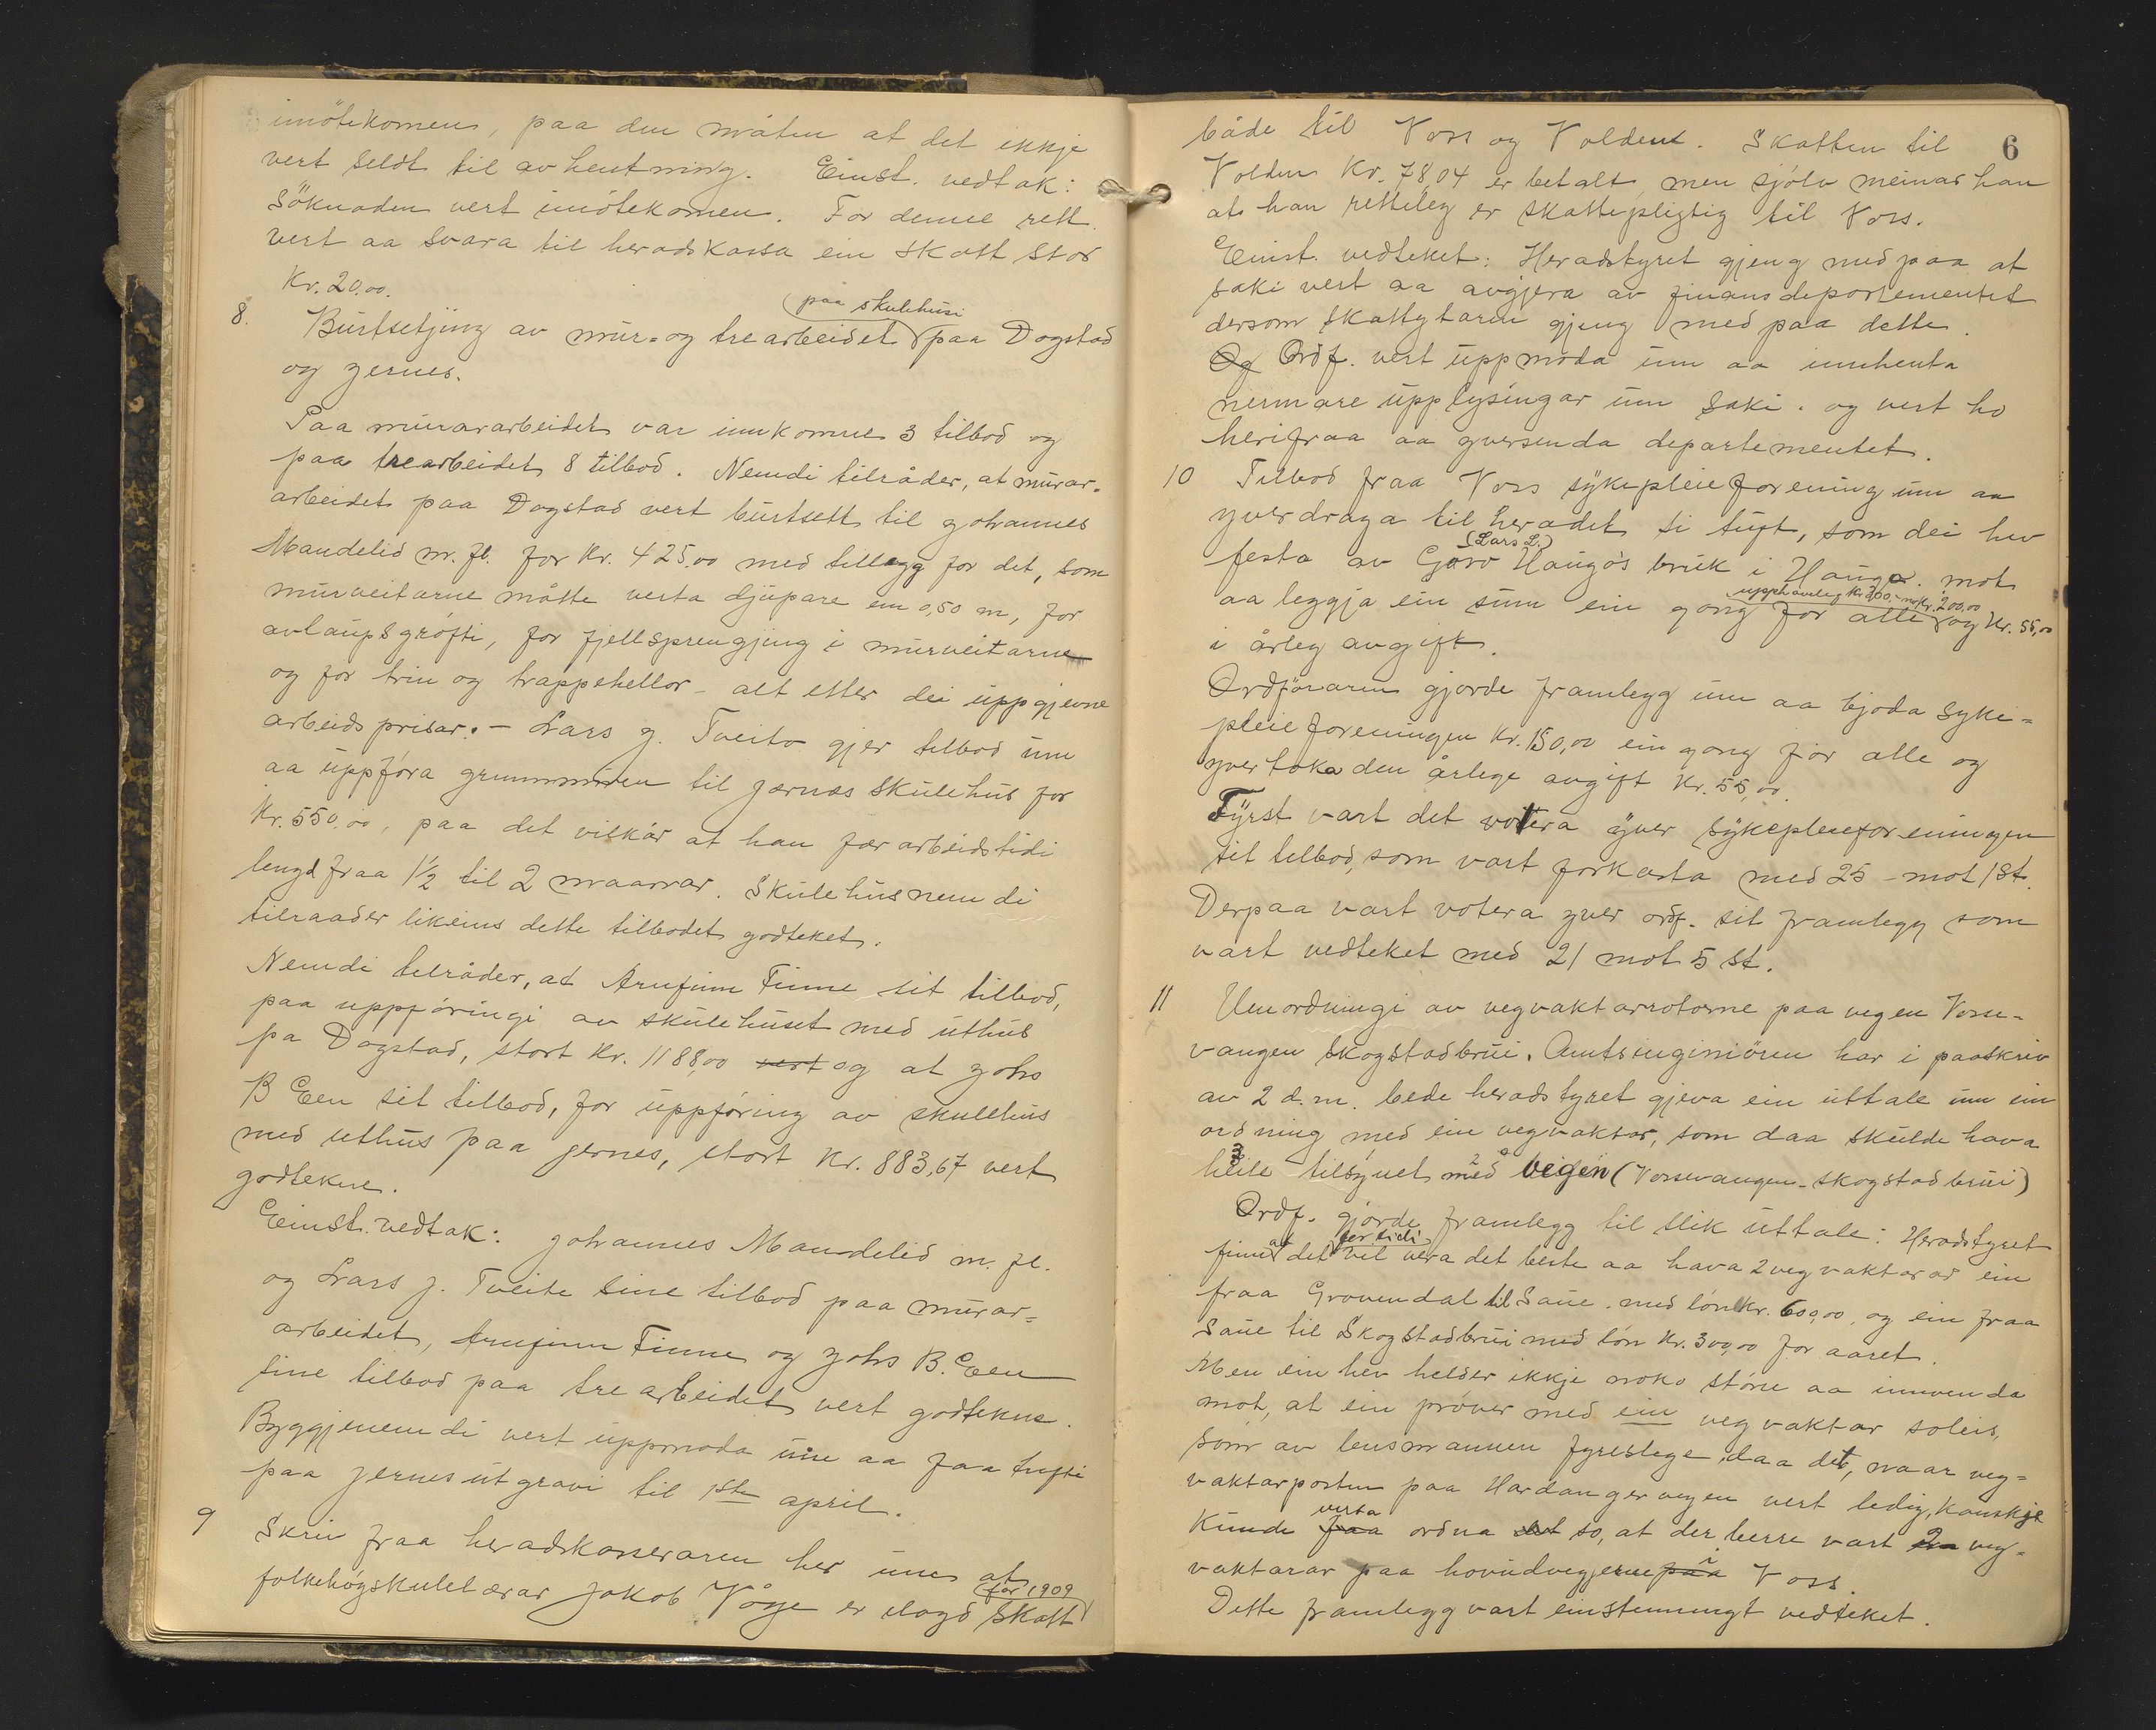 imötekomen, paa den måten at det ikkje
vert seldt til avhentning. Einst. vedtak:
Söknaden vert imötekomen. For denne rett
vert aa svara til heradskassa ein skatt stor
Kr. 20,00.
8. Burtsetjing av mur- og trearbeidet (paa skulehusi) paa Dagstad
og Jernes.
Paa murararbeidet var innkomne 3 tilbod og
paa trearbeidet 8 tilbod. Nemdi tilråder, at murar-
arbeidet paa Dagstad vert burtsett til Johannes
Mandelid m. fl. for Kr. 425,00 med tillegg for det, som
murveitarne måtte verta djupare enn 0,50 m, for
avlaupsgrófti, for fjellsprengjing i murveitarne
og for trin og trappehellor – alt etter dei uppgjevne
arbeidsprisar. – Lars J. Tveito gjer tilbod um
aa uppfóra grunnmuren til Jærnæs skulehus for
Kr. 550,00, paa det vilkår at han fær arbeidstidi
lengd fraa 1½ til 2 maanar. Skulehusnemdi
tilraader likeins dette tilbodet godteket.
Nemdi tilråder, at Arnfinn Finne sit tilbod,
paa uppfóringi av skulehuset med uthus
pa Dagstad, stort Kr. 1188,00 vert og at Johs
B Een sit tilbod, for uppfóring av skulehus
med uthus paa Jernes, stort Kr. 883,67 vert
godtekne.
Einst. vedtak: Johannes Mandelid m. fl.
og Lars J. Tveite sine tilbod paa murar-
arbeidet, Arnfinn Finne og Johs B. Een
sine tilbod paa trearbeidet vert godtekne.
Byggjenemdi vert uppmoda um aa faa tufti
paa Jernes utgravi til 1ste april.
9 Skriv fraa heradskasseraren her um at
folkehógskulelærar Jakob Våge er ilagd (for 1909) skatt
6
både til Voss og Volden. Skatten til
Volden Kr. 78,04 er betalt, men sjólv meinar han
at han retteleg er skattepligtig til Voss.
Einst. vedteket: Heradstyret gjeng med paa at
saki vert aa avgjera av finansdepartementet
dersom skattytaren gjeng med paa dette.
Og Ordf. vert uppmoda um aa innhenta
nermare upplysingar um saki. og vert ho
herifraa aa yversenda departementet.
10 Tilbod fraa Voss sykepleieforening um aa
yverdraga til heradet si tuft, som dei hev
festa av Garo (Lars L.) Haugós bruk i Haugo. mot
aa leggja ein sum ein gong for alle upphaveleg Kr 300,- no Kr. 200,00 og Kr. 55,00
i årleg avgift.
Ordföraren gjorde framlegg um aa bjoda syke-
pleieforeningen Kr. 150,00 ein gong for alle og
yvertaka den årlege avgift Kr. 55,00.
Fyrst vart det votera yver sykepleieforeningen
sit tilbod, som vart forkasta med 25 mot 1 st.
Derpaa vart votera yver ordf. sit framlegg som
vart vedteket med 21 mot 5 st.
11 Umordningi av vegvaktarrotorne paa vegen Vosse-
vangen Skogstadbrui. Amtsingeniören har i paaskriv
av 2 d. m. bede heradstyret gjeva ein uttale um ein
ordning med ein vegvaktar, som daa skulde hava
heile tilsynet med veigen (Vossevangen – Skogstadbrui)
Ordf. gjorde framlegg til slik uttale: Heradstyret
finn at det fertidi vil vera det beste aa hava 2 vegvaktarar ein
fraa Grovendal til Saue. med lón Kr. 600,00, og ein fraa
Saue til Skogstadbrui med lón Kr. 300,00 for aaret.
Men ein hev helder ikkje noko störe aa innvenda
mot, at ein próver med ein vegvaktar soleis,
som av lensmannen fyreslege, daa det, naar veg-
vaktarposten paa Hardangervegen vert ledig, kanskje
kunde faa verta ordna det so, at der berre vart 2 veg-
vaktarar paa hovudvegjerne paa Voss.
Dette framlegg vart einstemmugt vedteket.